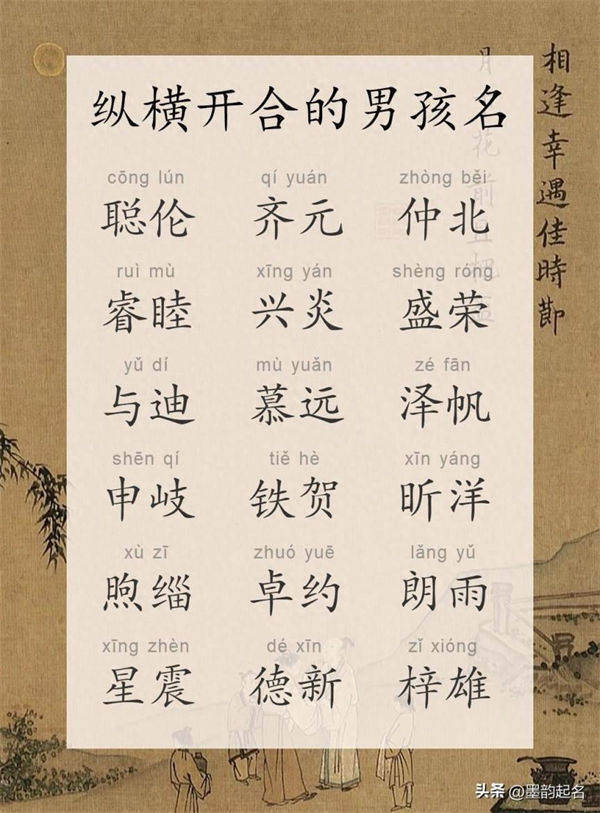 纵横开合的男孩名
cōng lún qí yuán zhòng běi
聪伦 齐元 仲北
ruì mù xīng yán shèng róng
睿睦 兴炎 盛荣
yǔ dí mù yuǎn zé fān
与迪 慕远 泽帆
shēn qí tiě hè xīn yáng
申岐 铁贺 昕洋
xù zī zhuó yuē lǎng yǔ
煦缁 卓约 朗雨
xīng zhèn dé xīn zǐ xióng
星震 德新 梓雄
相逢幸遇佳時節
月
花前
头条 @墨韵起名